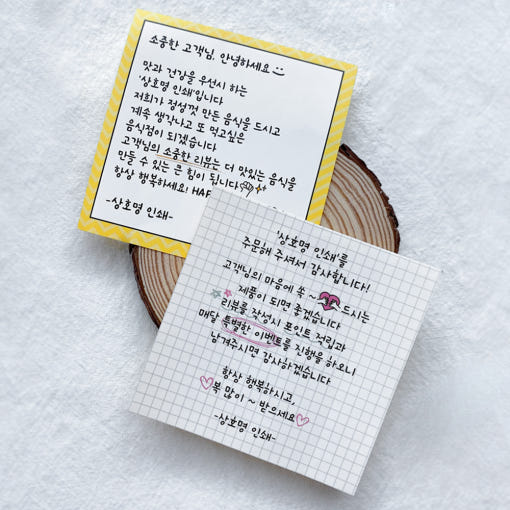 소중한 고객님, 안녕하세요
맛과 건강을 우선시 하는
'상호명 인쇄'입니다
저희가 정성껏 만든 음식을 드시고
계속 생각나고 또 먹고싶은
음식점이 되겠습니다
고객님의 소중한 리뷰는 더 맛있는 음식을
만들 수 있는 큰 힘이 됩니다
항상 행복하세요!
-상호명 인쇄-
'상호명 인쇄'를
주문해 주셔서 감사합니다!
고객님의 마음에 쏙 ~ 드시는
제품이 되면 좋겠습니다
리뷰를 작성시 포인트 적립과
매달 특별한 이벤트를 진행을 하오니
남겨주시면 감사하겠습니다
항상 행복하시고,
복 많이 ~ 받으세요
-상호명 인쇄-